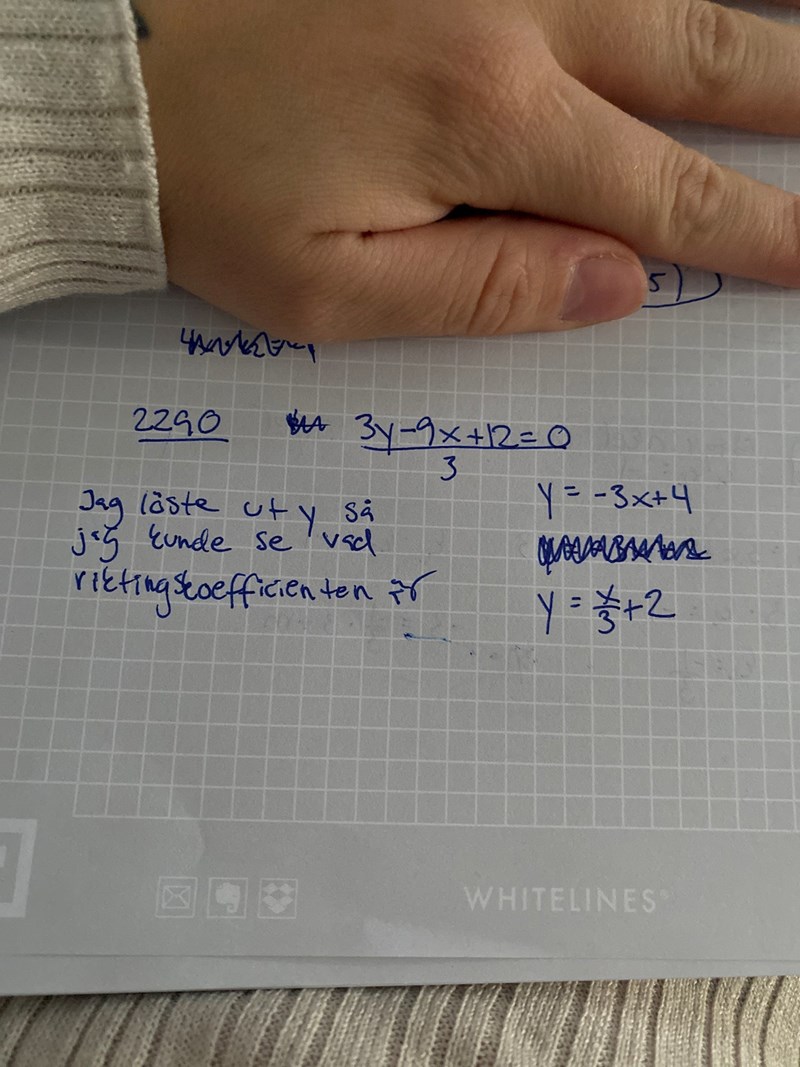 5)
2290 3y-9x+12=0
3
Jag löste ut y så
jag kunde se vad
riktingskoefficienten är
y = -3x+4
y = x/3 +2
WHITELINES®